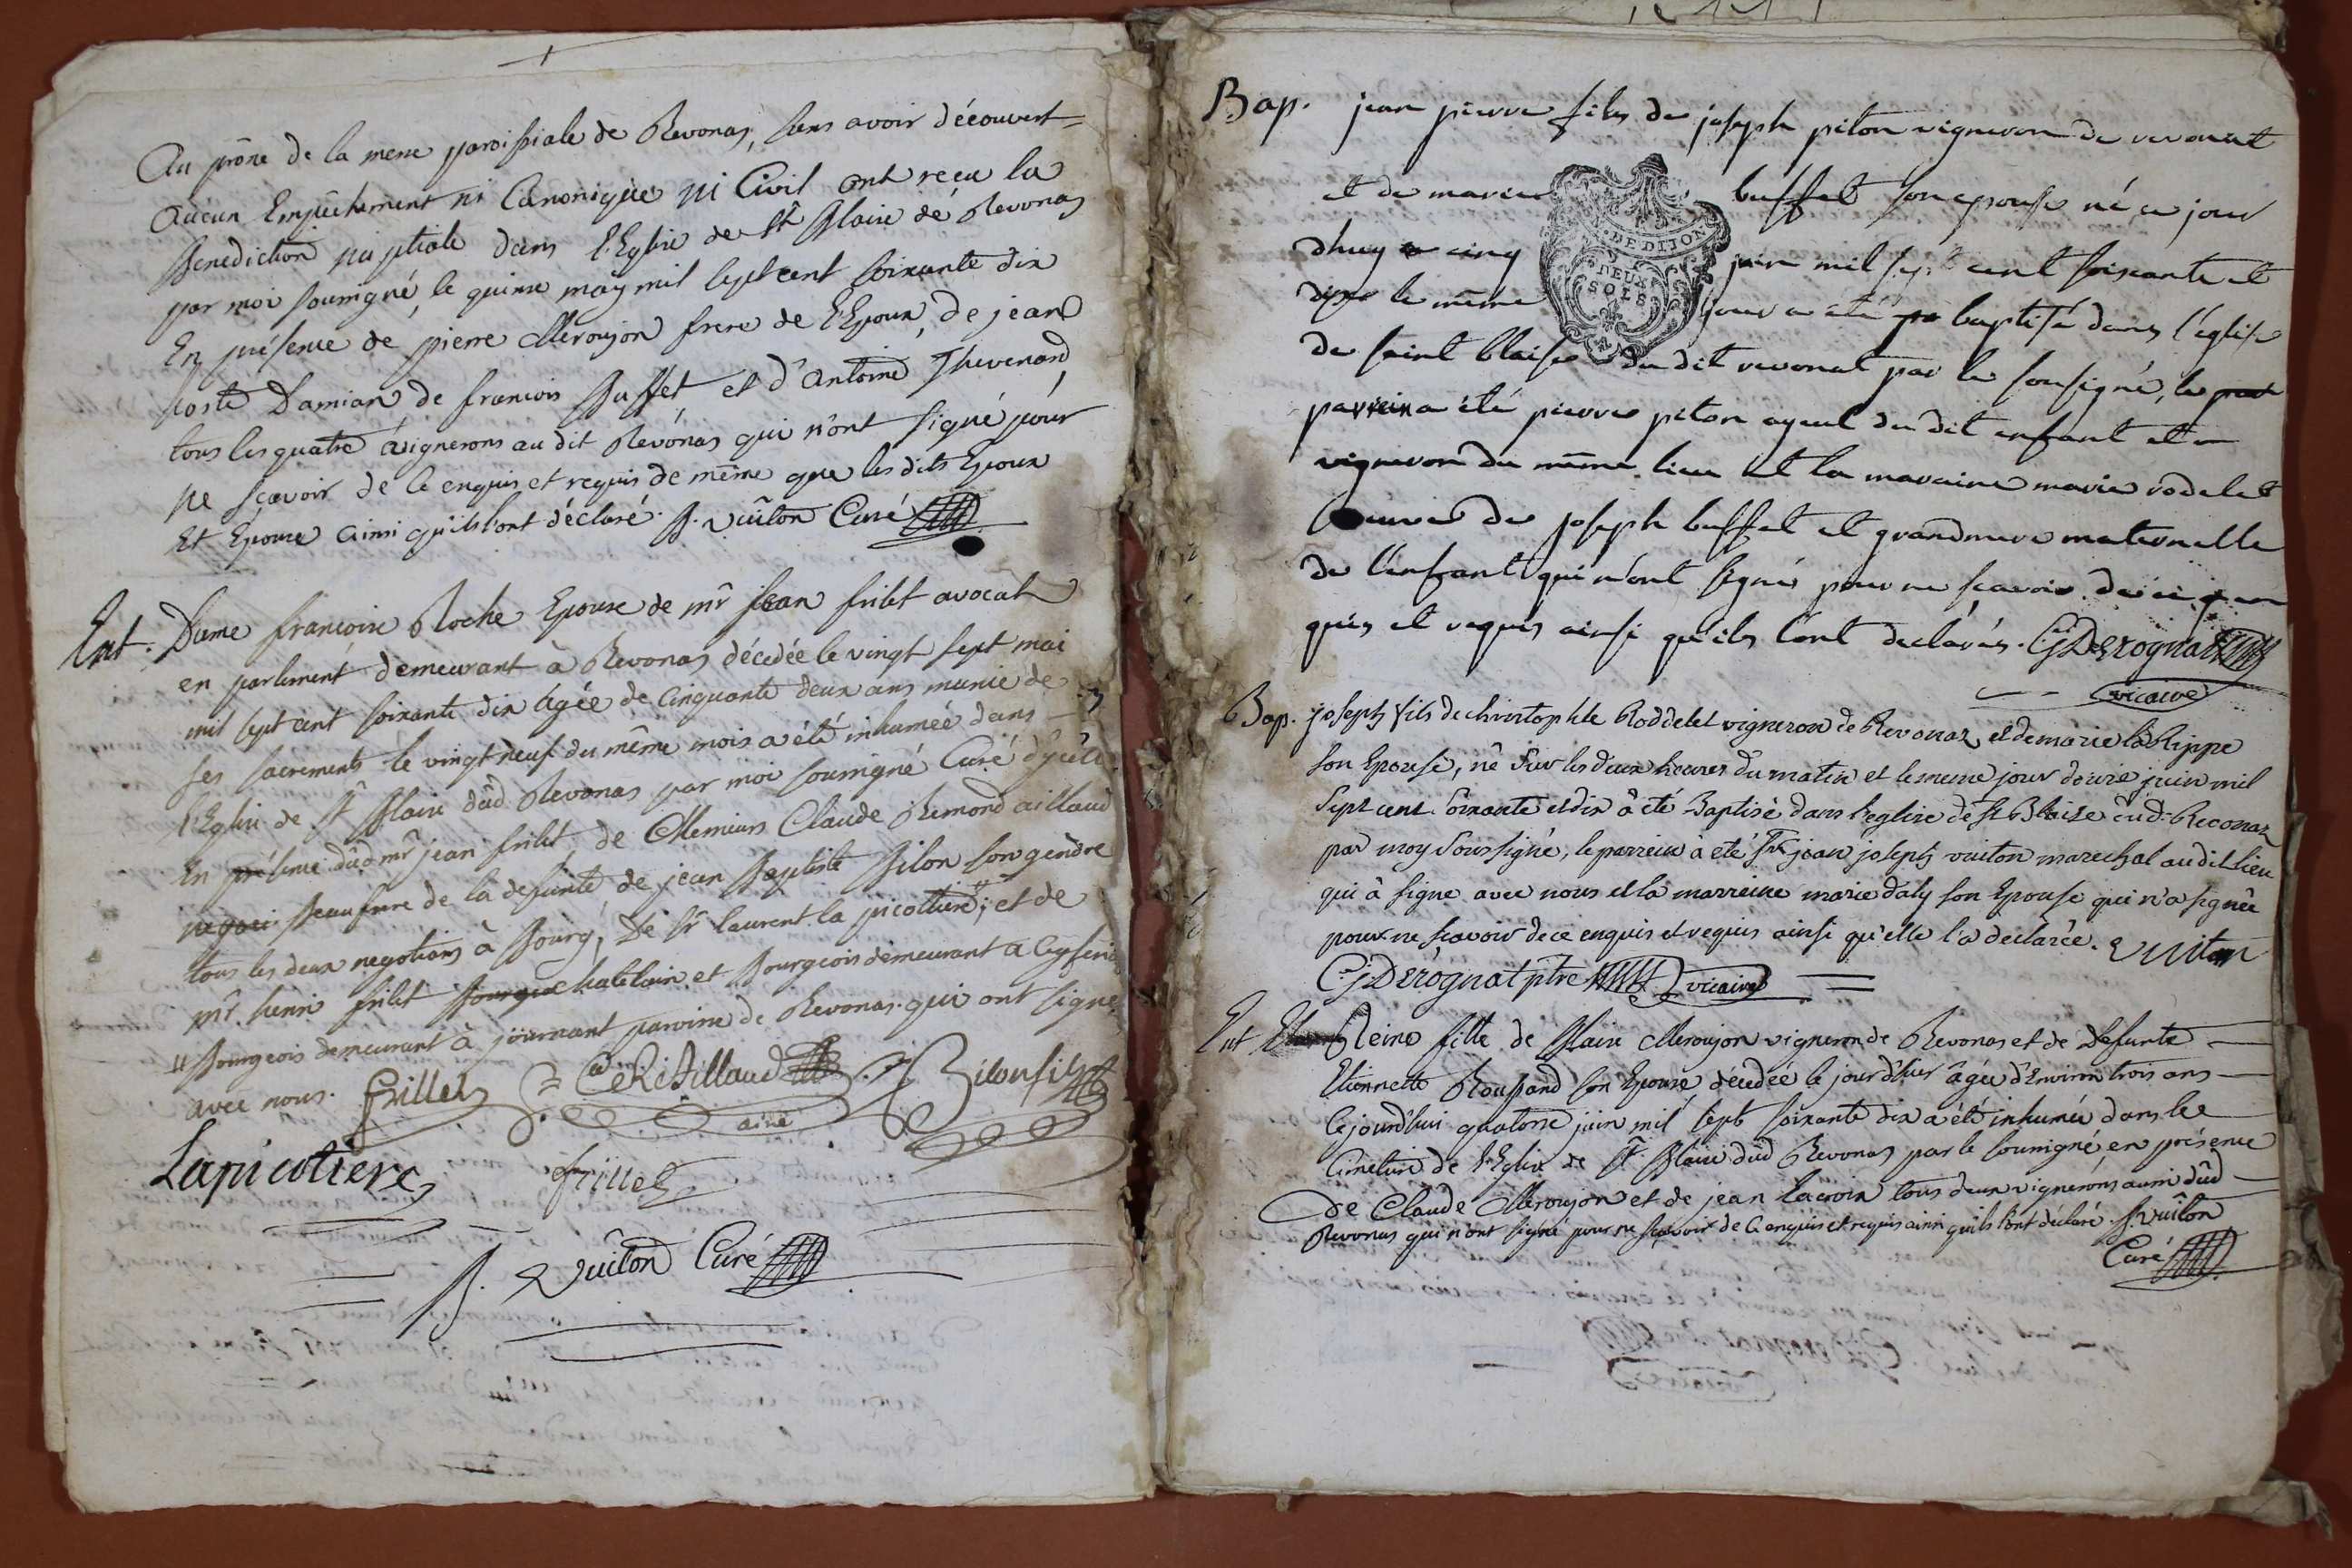 Au prône de la mene paroissiale de Revonas, sans avoir découvert
aucun Empêchement ni Canonique ni Civil ont reçu la
Benediction nuptiale dans l'Eglise de St Blaise de Revonas
par moi soussigné, le quinze may mil sept cent soixante dix
En présence de pierre Meroujon frere de l'Epoux, de jean
joste Damian de francois Buffét et d'antoine Thevenand,
tous les quatre vignerons au dit Revonas qui n'ont signé pour
ne sçavoir de ce enquis et requis de même que les dits Epoux
Et Epouse ainsi qu'ils l'ont déclaré. B. vuiton Curé
Ent. Dame francoise Roche Epouse de mr jean frilet avocat
en parlement demeurant à Revonas décédée le vingt sept mai
mil sept cent soixante dix agée de cinquante deux ans munie de
ses sacrements le vingt neuf du même mois a été inhumée dans
l'Eglise de St Blaise dud Revonas par moi soussigné Curé d'ycelle
En présence dud mr jean frilet, de Messieurs Claude Remond aillaud
negoci Beaufrere de la defunte, de jean Baptiste Bilon son gendre
tous les deux negotians à Bourg, de Sr laurent la picottiere; et de
mr henri frilet Bourgeo chatelain et Bourgeois demeurant a Ceyseria
Bourgeois demeurant à journant paroisse de Revonas. qui ont signé
avec nous. frillet Cde Rd Aillaud Bilon fils
ainé
Lapicotiere frillet
B. vuiton Curé
Bap. jean pierre fils de joseph piton vigneron de revonat
et de marie buffet son epouse né ce jour
dhuy cinq juin mil sept cent soixante et
dix le même jour a été baptisé dans l'église
DEUX
SOLS
de saint blaise du dit revonat par le sousigné, le
parrein a été pierre piton ayeul du dit enfant et
vigneron du même lieu et la maraine marie rodelet
veuve de joseph buffet et grandmere maternelle
de l'enfant qui n'ont signé pour ne scavoir de ce en
quis et requis ainsi qu'ils l'ont declarés. CJ Derognat
vicaire
Bap. joseph fils de christophle Roddelet vigneron de Revonaz et de marie la Rippe
son Epouse, né sur les deux heures du matin et le meme jour douze juin mil
sept cent soixante et dix â été Baptisé dans l'eglise de St Blaise dud. Revonaz
par moy soussigné, le parrein à eté Sr jean joseph vuiton marechal audit lieu
qui à signe avec nous et la marreine marie daly son Epouse qui n'a signée
pour ne scavoir de ce enquis et requis ainsi qu'elle l'a declarée. vuiton
CJ Derognat ptre vicaire
Ent Reine fille de Blaise Meroujon vigneron de Revonas et de defunte
Etiennette Roussand son Epouse, décédée le jour d'hier âgée d'Environ trois ans
Cejourd'hui quatorze juin mil sept soixante dix a été inhumée dans le
Cimetiere de l'Eglise de St. Blaise dud Revonas par le soussigné en présence
de Claude Meroujon et de jean Lacroix tous deux vignerons aussi dud
Revonas qui n'ont signé pour ne sçavoir de ce enquis et requis ainsi qu'ils l'ont déclaré. B. vuiton
Curé